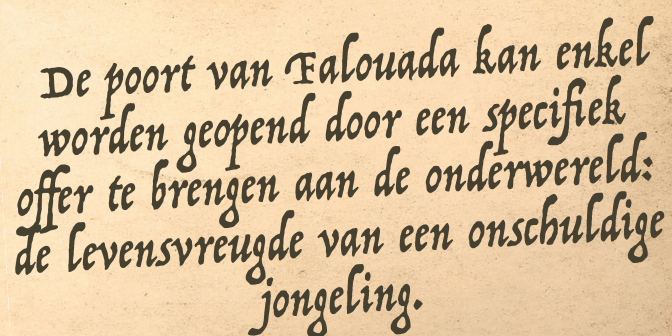 De poort van Falouada kan enkel
worden geopend door een specifiek
offer te brengen aan de onderwereld:
de levensvreugde van een onschuldige
jongeling.